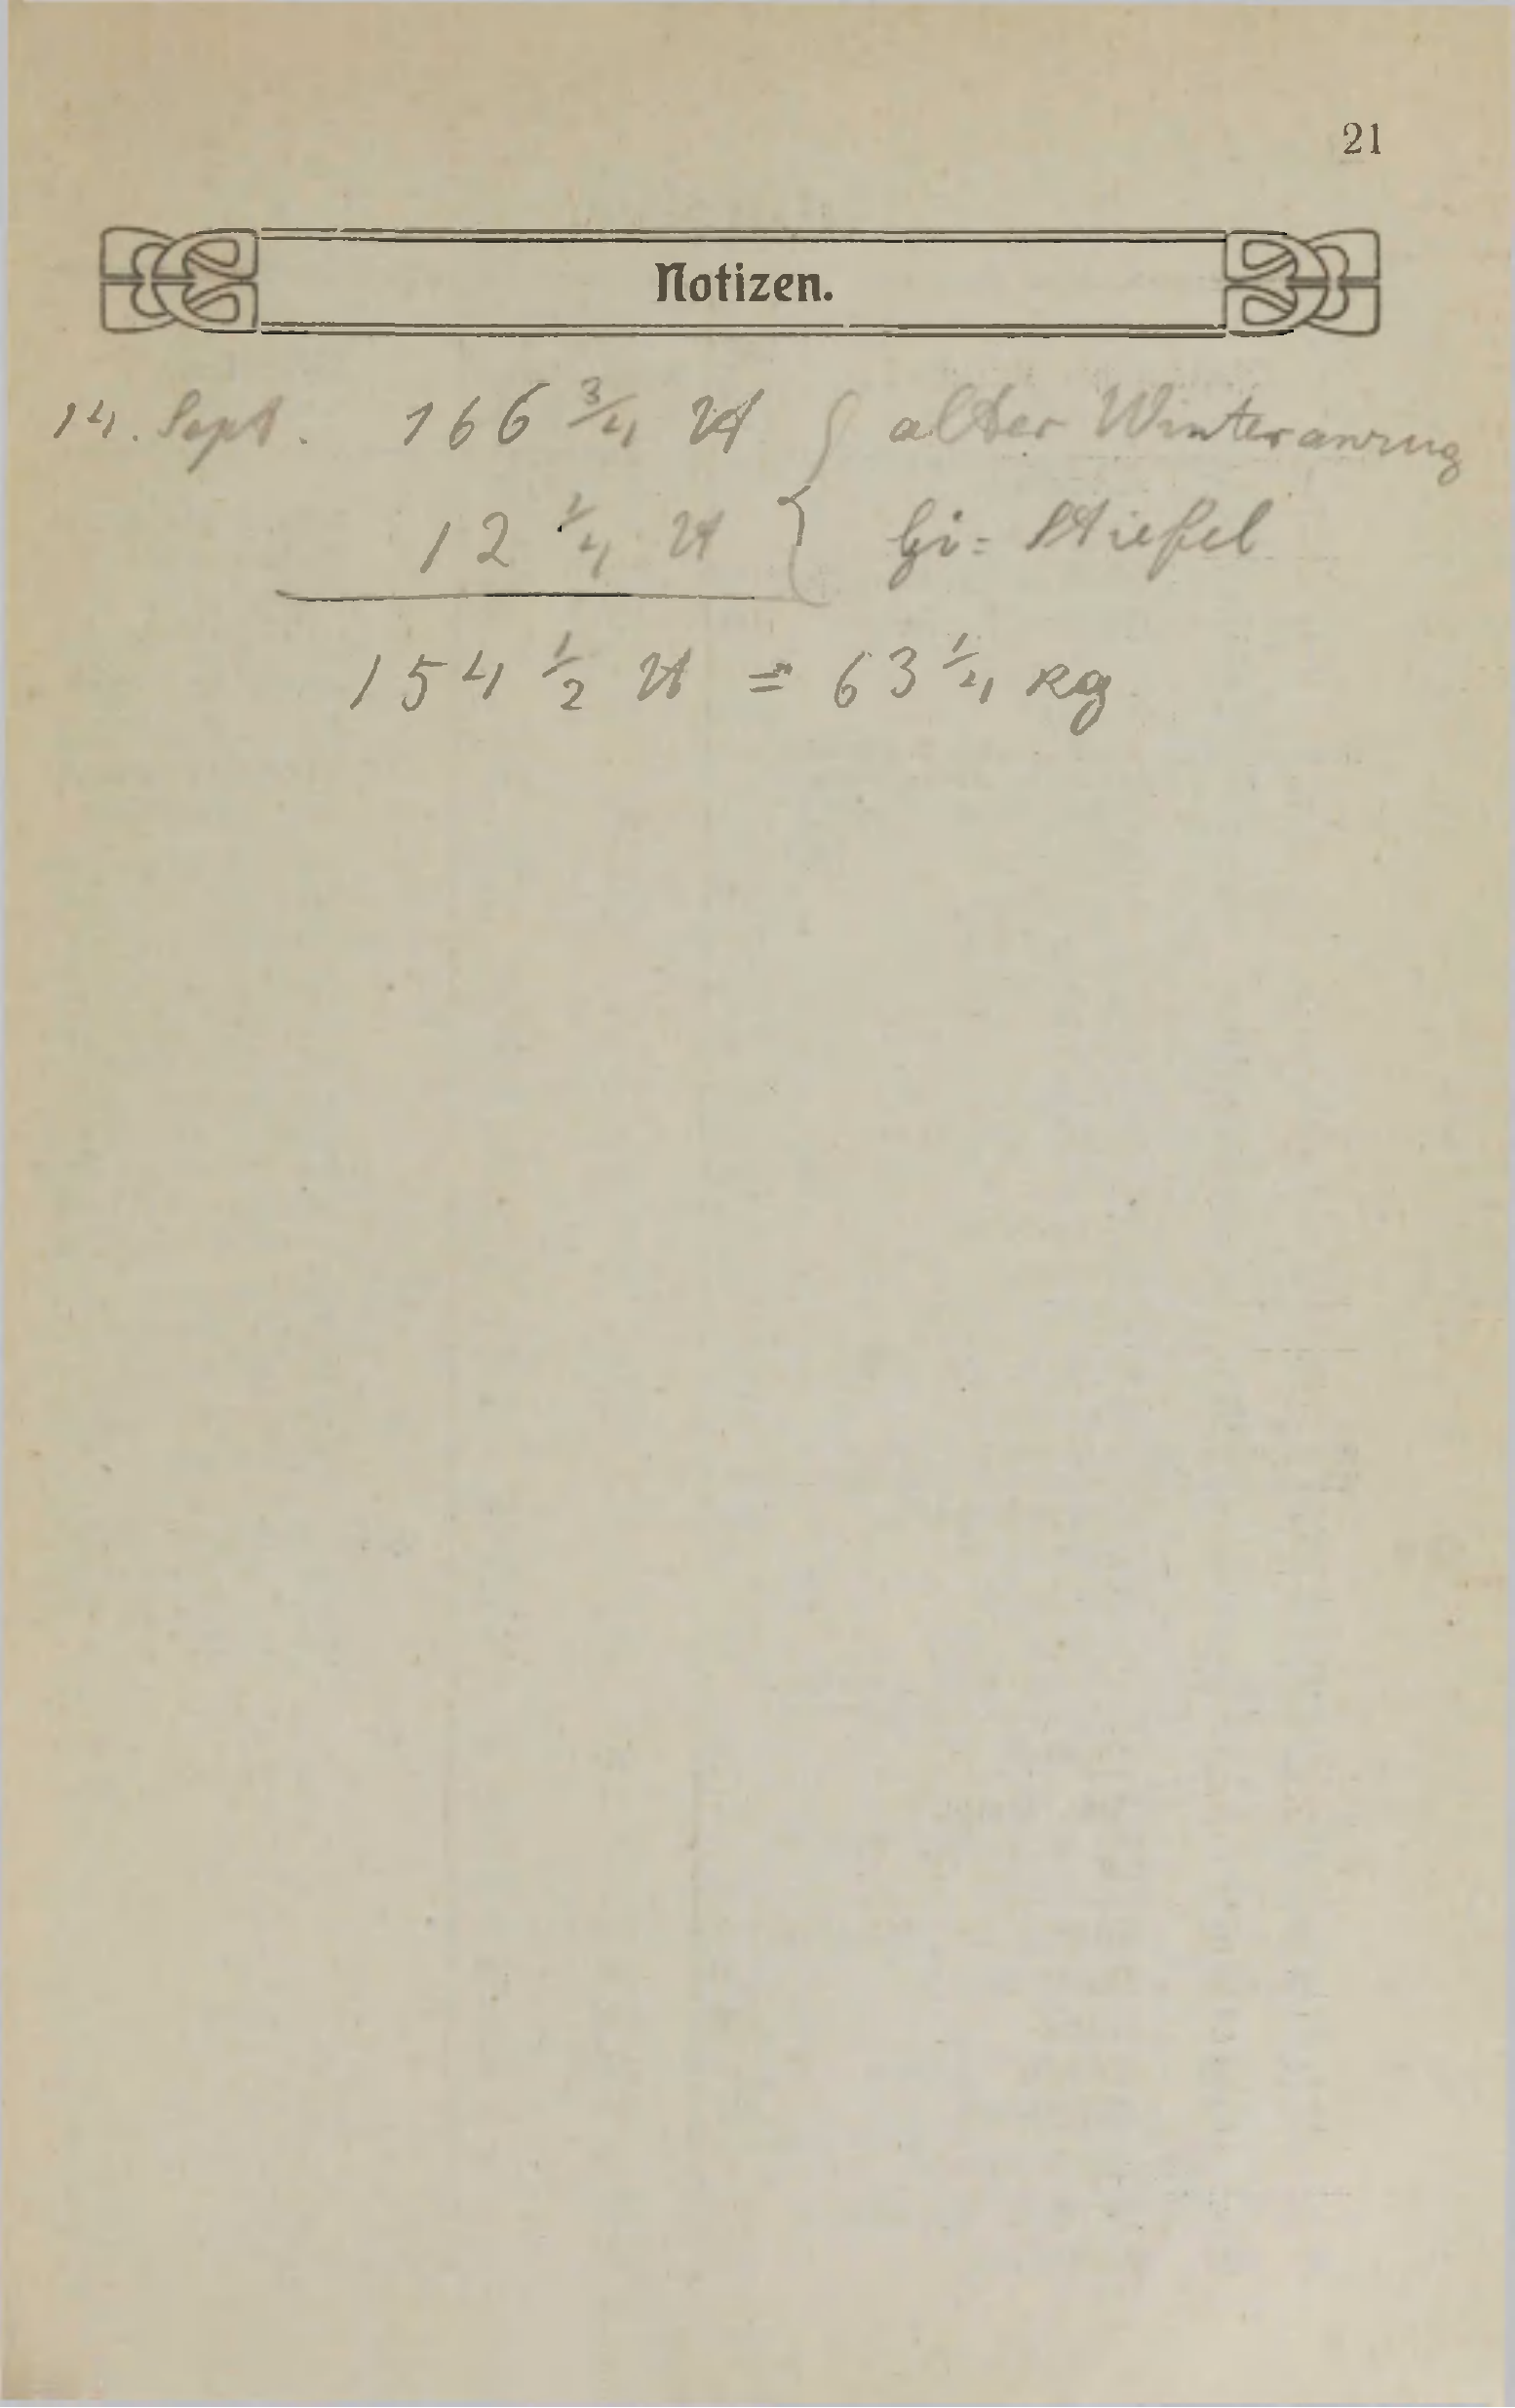 21
Notizen.
14. Sept. 166 3/4 ℔ { alter Winteranzug
12 1/4 ℔ { Gi= Stiefel
154 1/2 ℔ = 63 1/4 kg